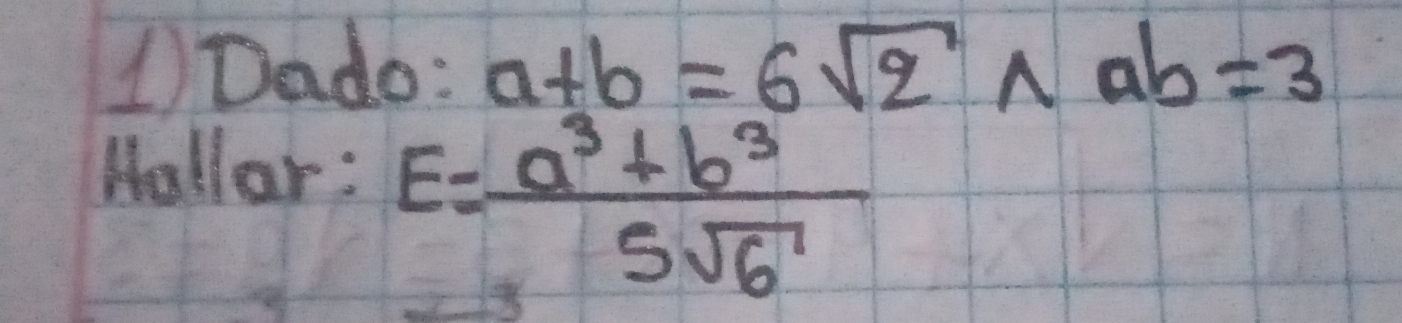 1) Dado: a+b = 6√2 ∧ ab = 3
Hallar: E = (a³ + b³) / (5√6)